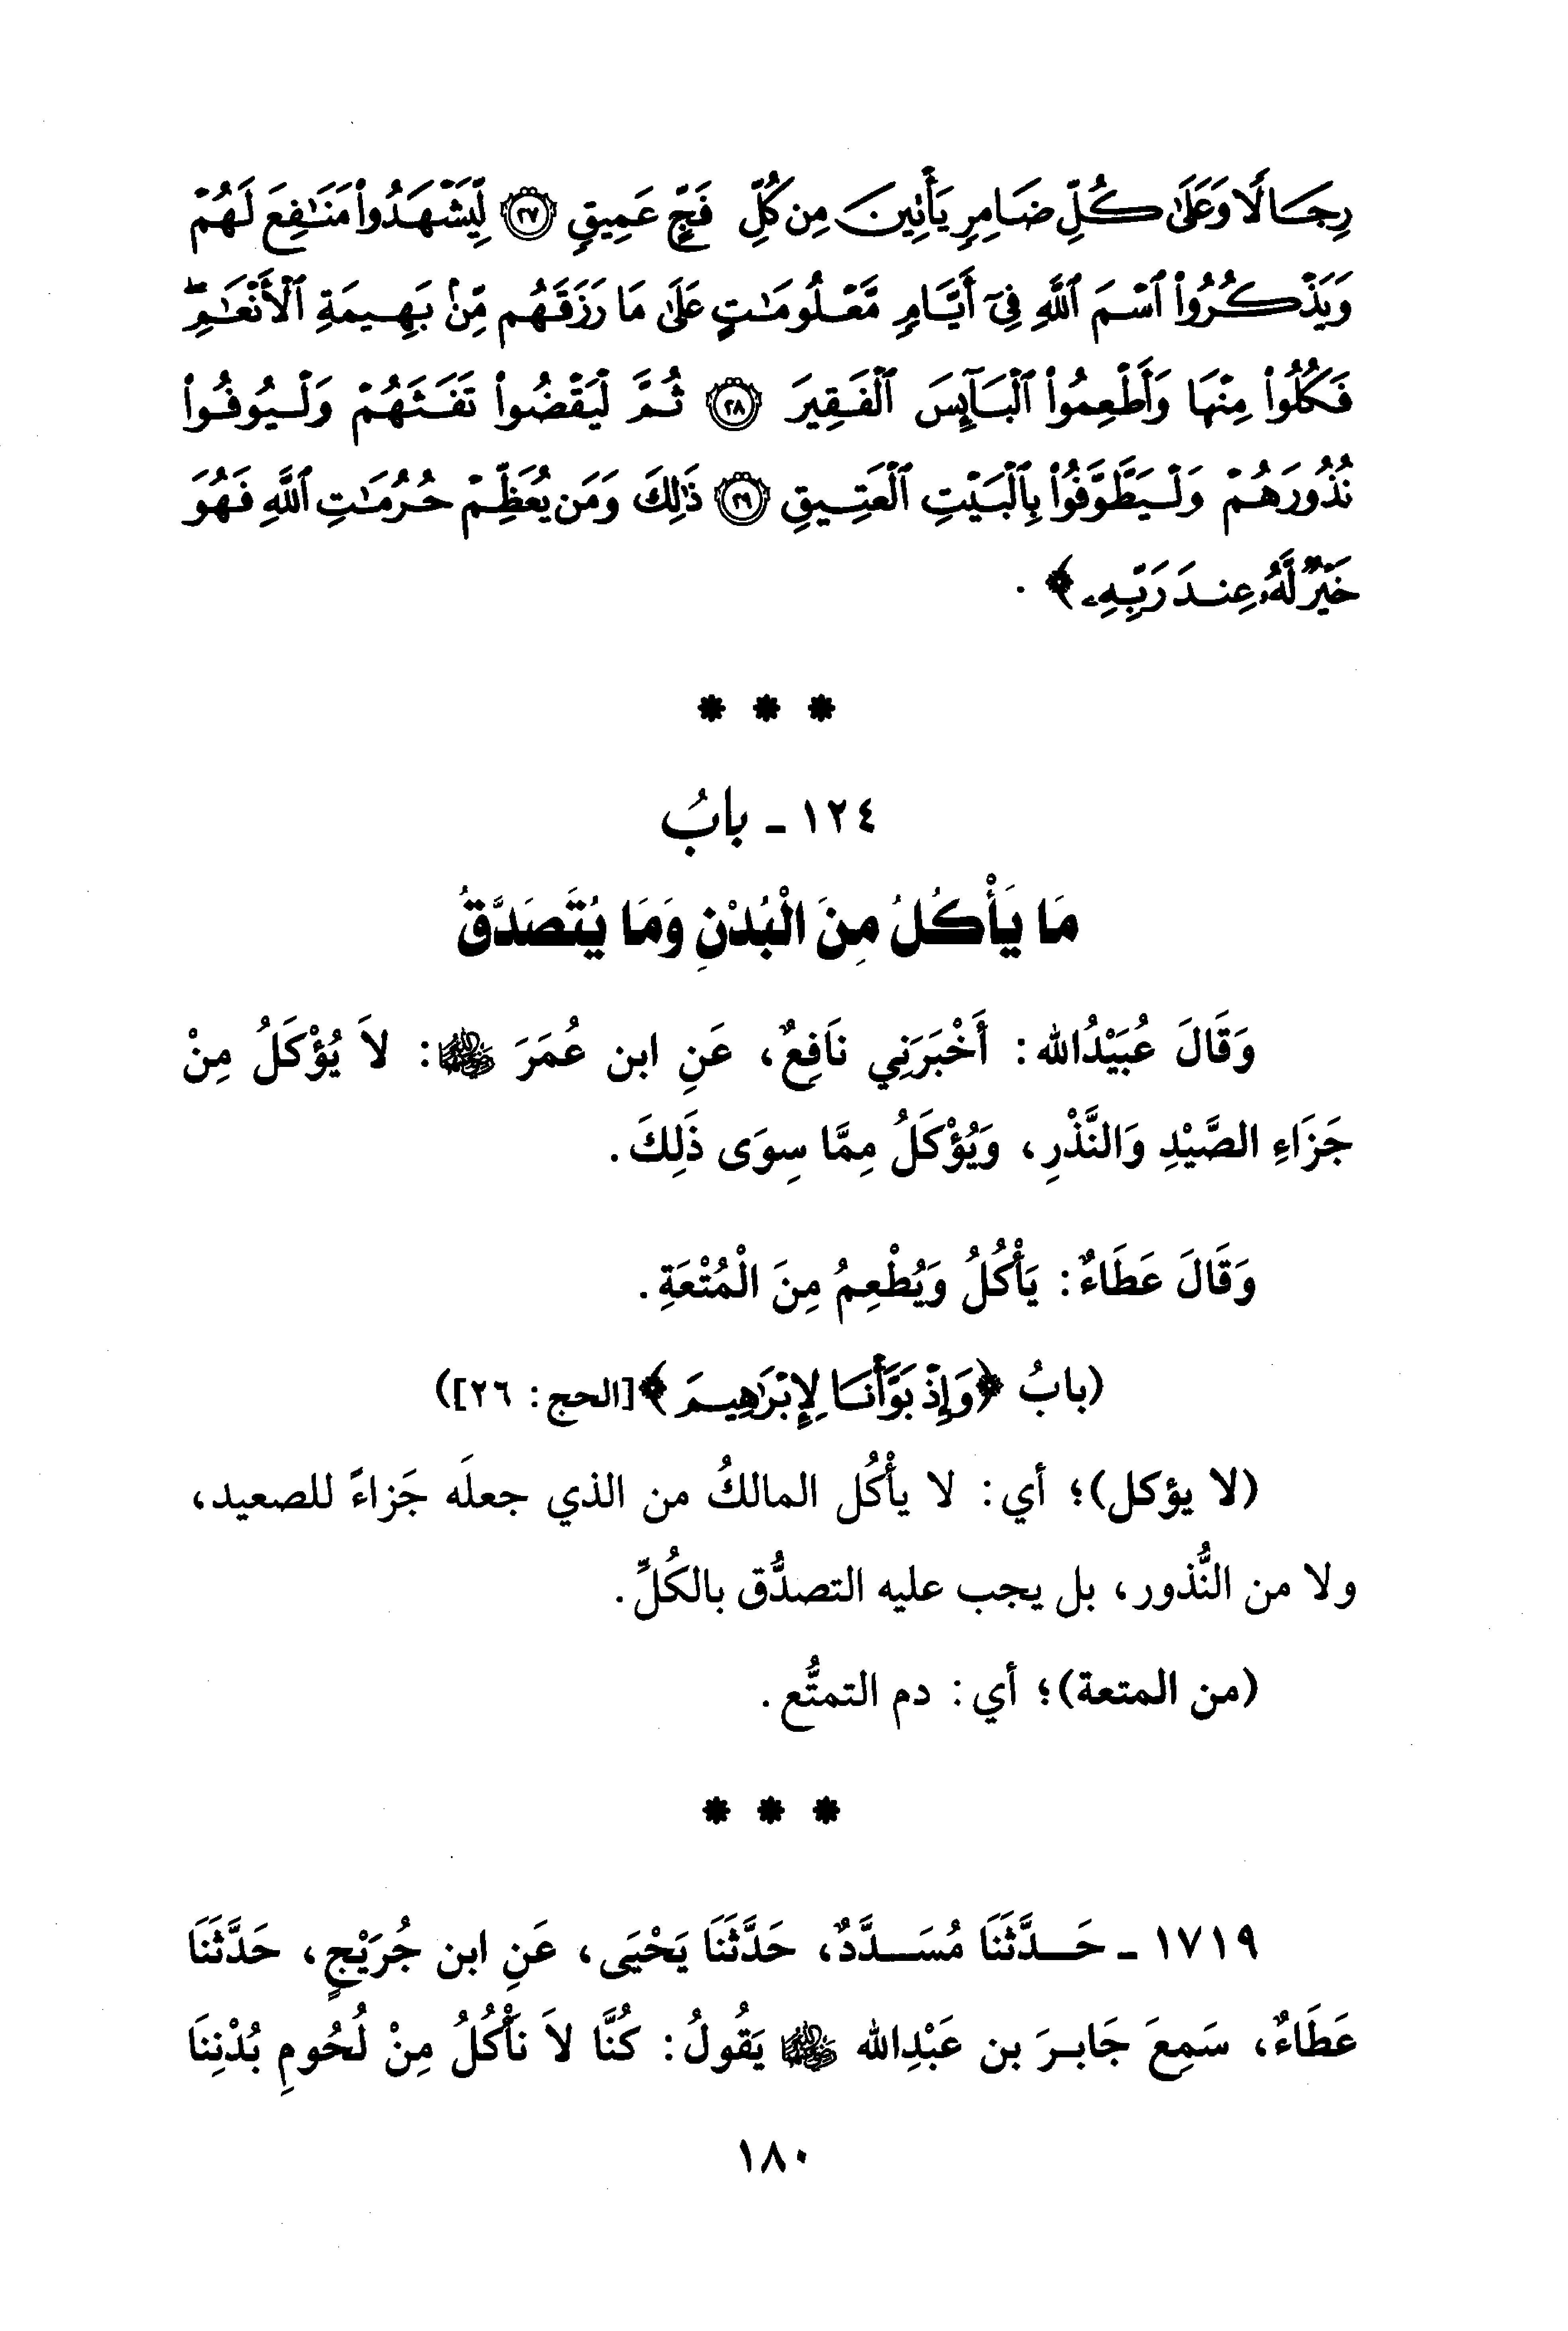 رِجَالًا وَعَلَىٰ كُلِّ ضَامِرٍ يَأْتِينَ مِن كُلِّ فَجٍّ عَمِيقٍ ﴿٢٧﴾ لِّيَشْهَدُوا۟ مَنَٰفِعَ لَهُمْ
وَيَذْكُرُوا۟ ٱسْمَ ٱللَّهِ فِىٓ أَيَّامٍ مَّعْلُومَٰتٍ عَلَىٰ مَا رَزَقَهُم مِّنۢ بَهِيمَةِ ٱلْأَنْعَٰمِ ۖ
فَكُلُوا۟ مِنْهَا وَأَطْعِمُوا۟ ٱلْبَآئِسَ ٱلْفَقِيرَ ﴿٢٨﴾ ثُمَّ لْيَقْضُوا۟ تَفَثَهُمْ وَلْيُوفُوا۟
نُذُورَهُمْ وَلْيَطَّوَّفُوا۟ بِٱلْبَيْتِ ٱلْعَتِيقِ ﴿٢٩﴾ ذَٰلِكَ وَمَن يُعَظِّمْ حُرُمَٰتِ ٱللَّهِ فَهُوَ
خَيْرٌ لَّهُۥ عِندَ رَبِّهِۦ﴾ .
* * *
١٢٤ - بابُ
مَا يَأْكُلُ مِنَ الْبُدْنِ وَمَا يُتَصَدَّقُ
وَقَالَ عُبَيْدُالله: أَخْبَرَنِي نَافِعٌ، عَنِ ابن عُمَرَ ﵄: لاَ يُؤْكَلُ مِنْ
جَزَاءِ الصَّيْدِ وَالنَّذْرِ، وَيُؤْكَلُ مِمَّا سِوَى ذَلِكَ.
وَقَالَ عَطَاءٌ: يَأْكُلُ وَيُطْعِمُ مِنَ الْمُتْعَةِ.
(بابُ ﴿وَإِذْ بَوَّأْنَا لِإِبْرَٰهِيمَ﴾ [الحج: ٢٦])
(لا يؤكل)؛ أي: لا يأْكُل المالكُ من الذي جعلَه جَزاءً للصعيد،
ولا من النُّذور، بل يجب عليه التصدُّق بالكُلِّ.
(من المتعة)؛ أي: دم التمتُّع.
* * *
١٧١٩ - حَدَّثَنَا مُسَدَّدٌ، حَدَّثَنَا يَحْيَى، عَنِ ابن جُرَيْجٍ، حَدَّثَنَا
عَطَاءٌ، سَمِعَ جَابِرَ بن عَبْدِالله ﵄ يَقُولُ: كُنَّا لاَ نَأْكُلُ مِنْ لُحُومِ بُدْنِنَا
١٨٠